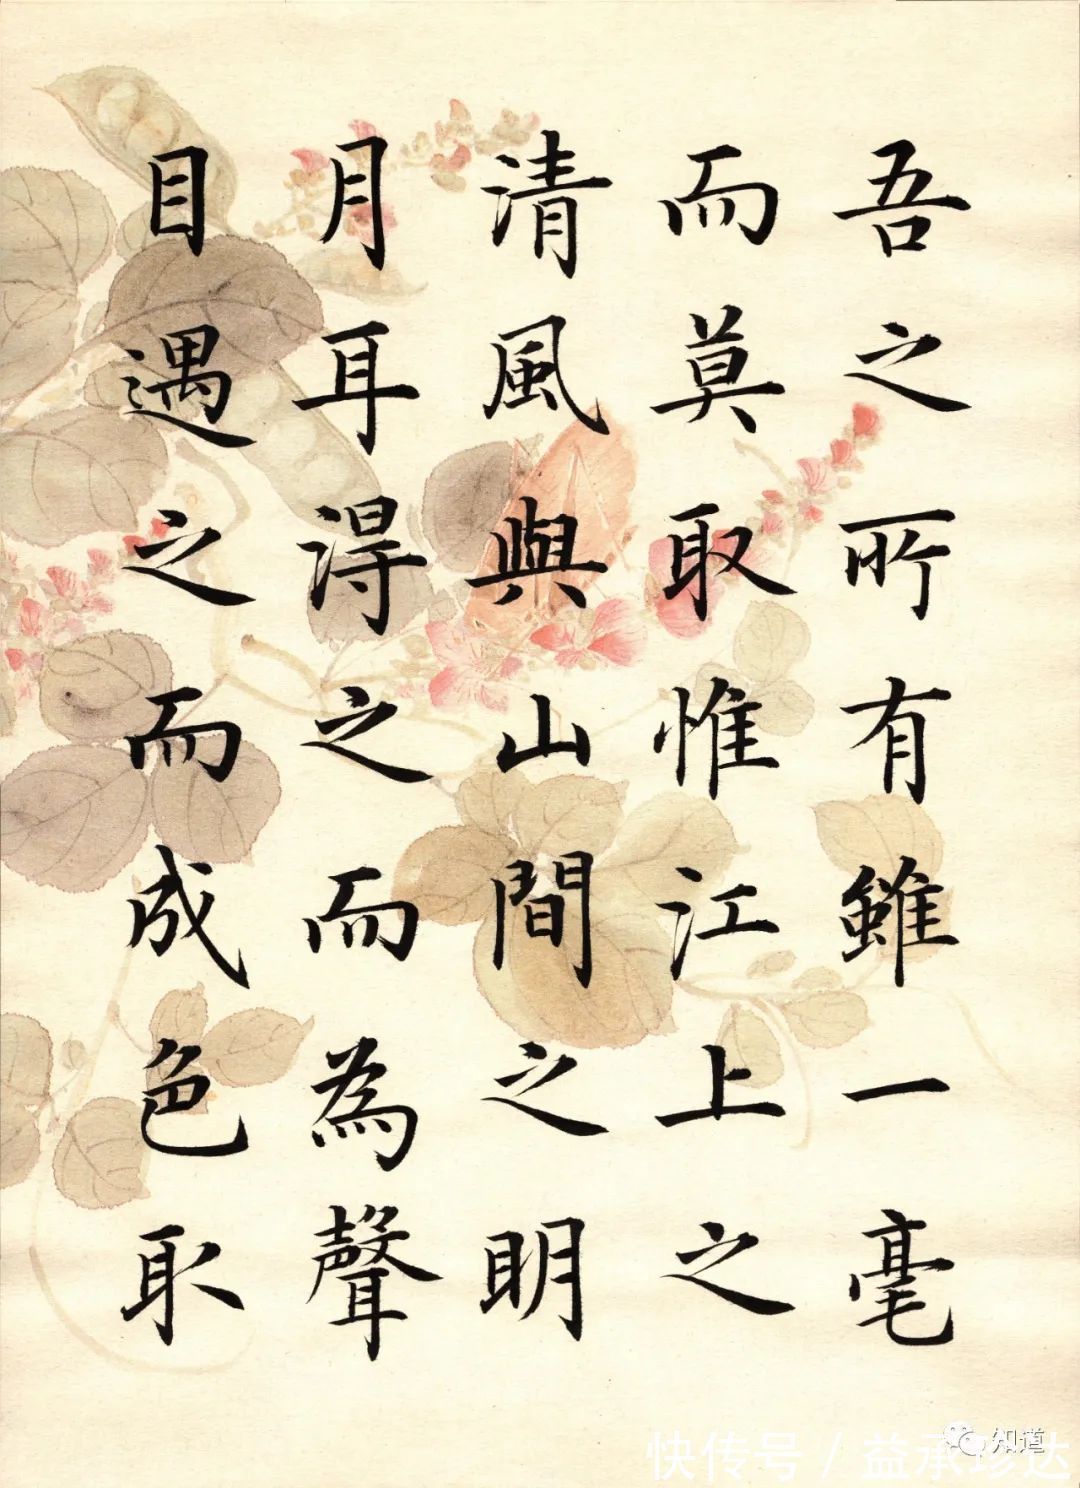 吾之所有雖一毫
而莫取惟江上之
清風與山間之明
月耳得之而為聲
目遇之而成色取
知道
快传号/益承珍达